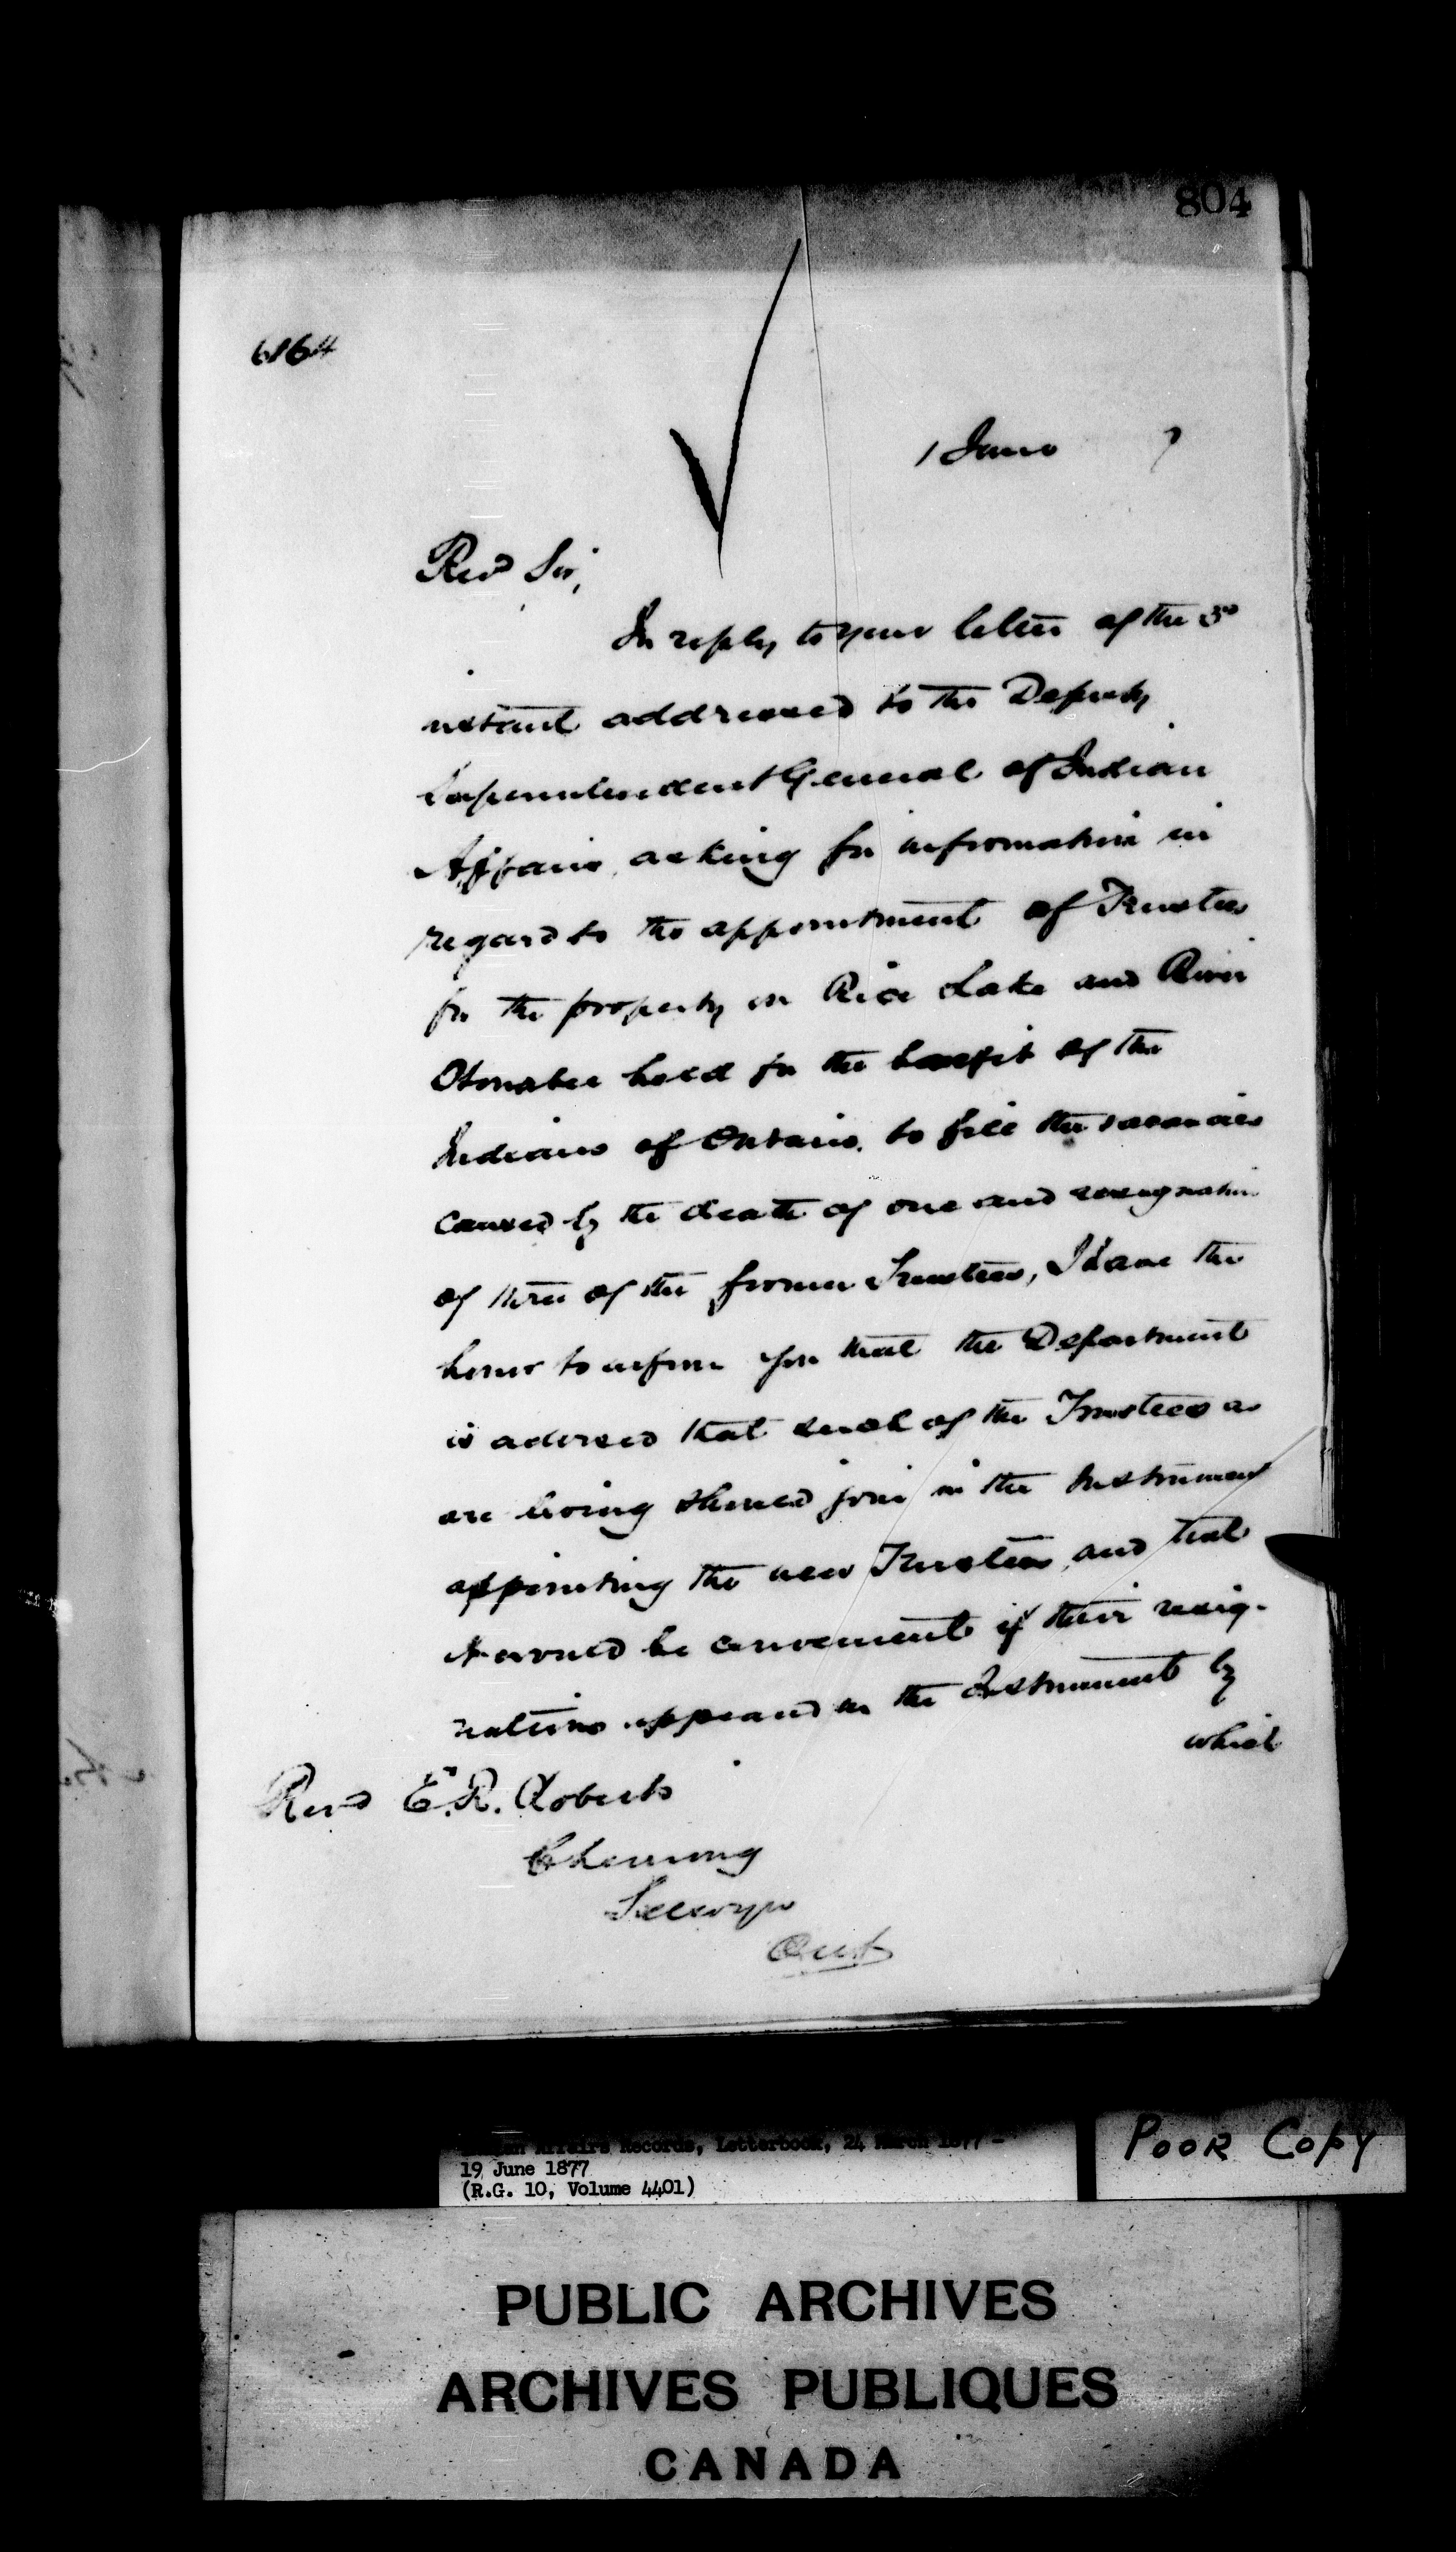 804
6164
1 June 7
Revd Sir,
In reply to your letter of the 3d
instant addressed to the Deputy
Superintendent General of Indian
Affairs, asking for information in
regard to the appointment of Trustees
for the property in Rice Lake and River
Otonabee held for the benefit of the
Indians of Ontario, to fill the vacancies
caused by the death of one and resignation
of three of the former Trustees, I have the
honor to inform you that the Department
is advised that such of the Trustees as
are living should join in the Instrument
appointing the new Trustees, and that
it would be convenient if their resig-
nations appeared in the Instrument by
which
Revd E.R. Roberts
Chemong
Selwyn
Ont
Indian Affairs Records, Letterbook, 24 March 1877 -
19 June 1877
(R.G. 10, Volume 4401)
POOR COPY
PUBLIC ARCHIVES
ARCHIVES PUBLIQUES
CANADA